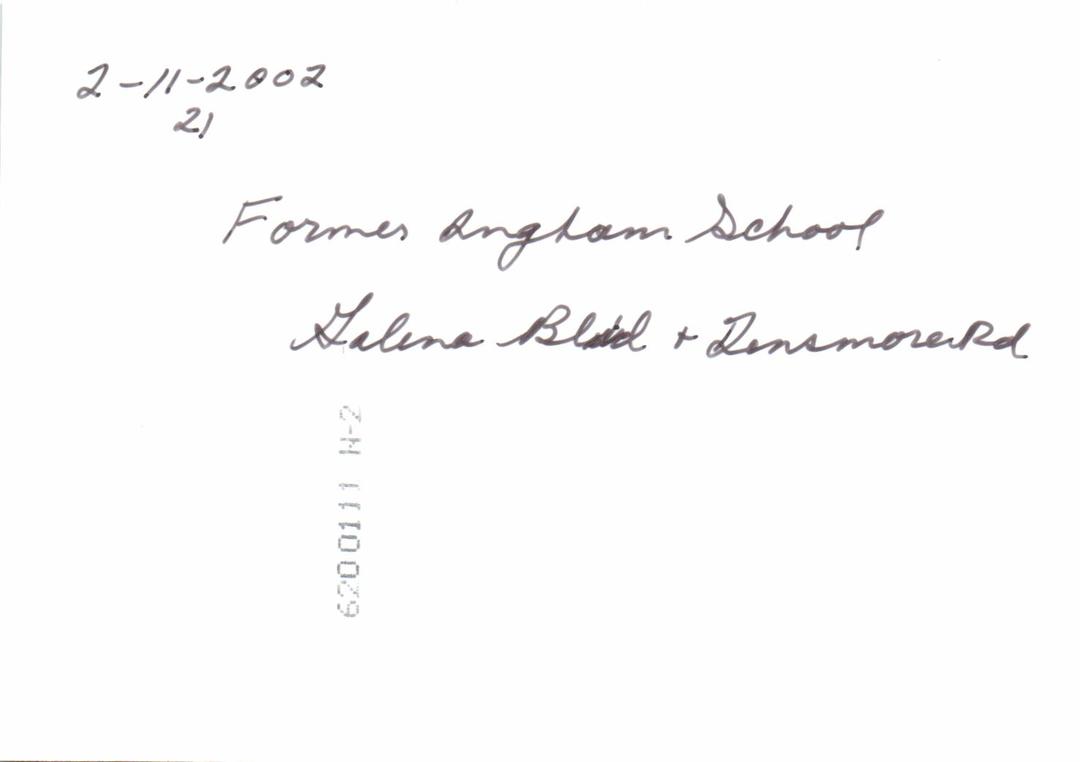 2-11-2002
21
Former Angham School
Galena Blvd + Densmore Rd
6200111 N-2